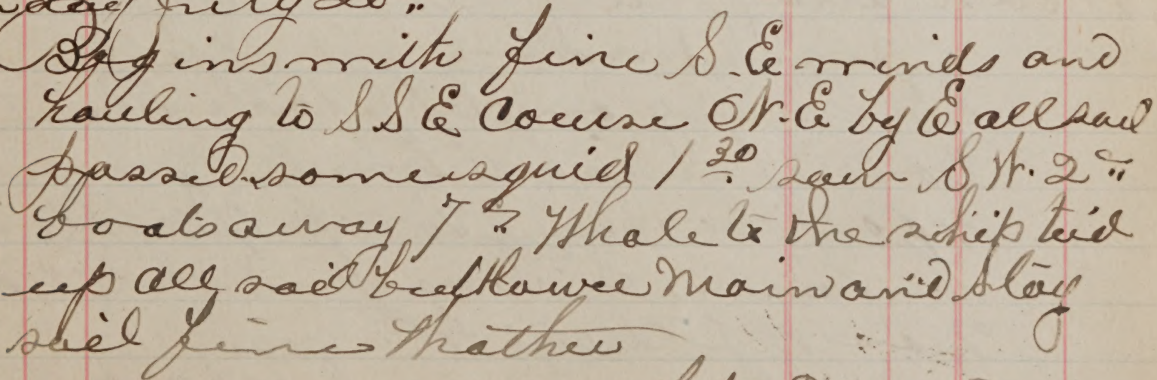 day July 20"
Begins with fine S.E winds and
hauling to S S E Course N.E by E all sail
passed some squid 1 30 saw S W. 2
boats away 7 Whale to the ship tied
up all sail but lower Main and Stay
sail fine Wather